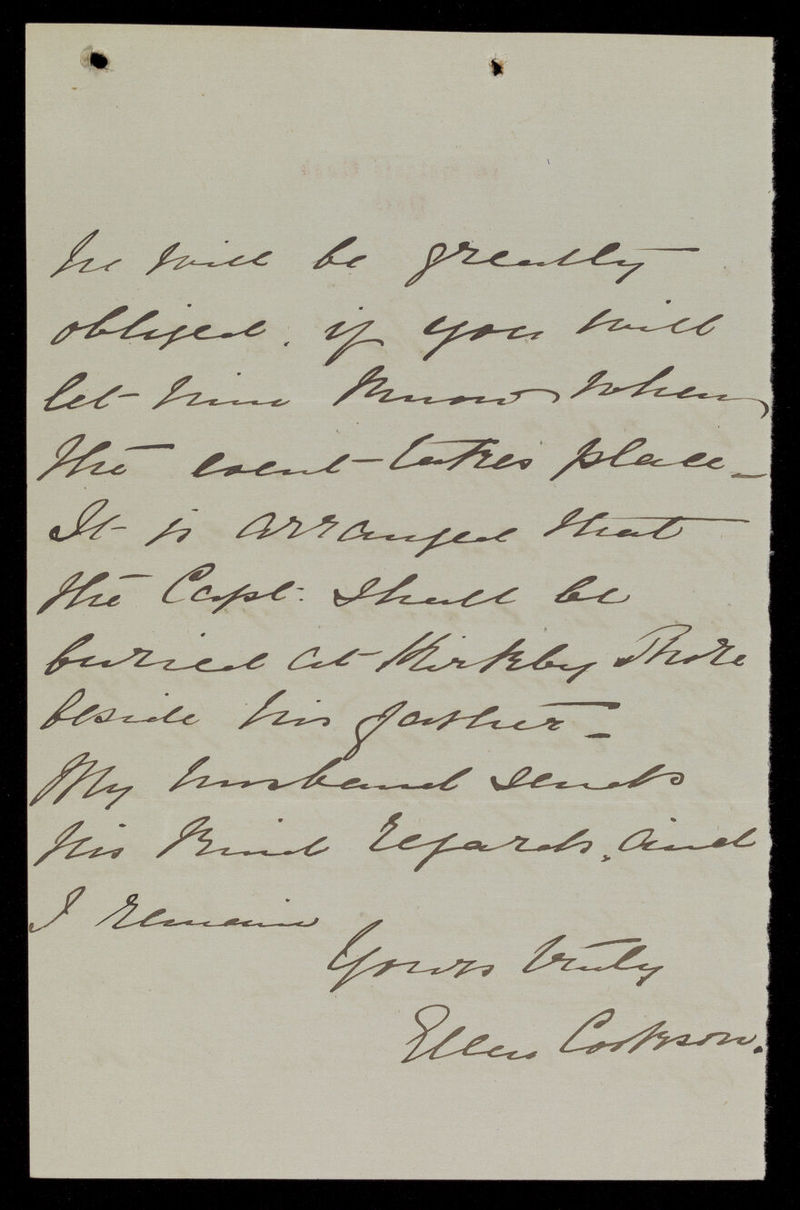 he will be greatly
obliged. if you will
let him know when
the event takes place -
It is arranged that
the Capt. Shall be
buried at Kirkby Thore
beside his father -
My husband sends
his kind regards, and
I remain
Yours truly
Ellen Cookson.